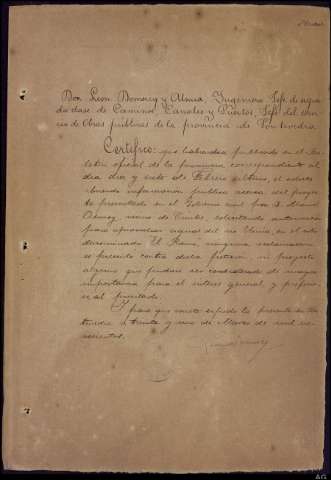 Don Leon Domercq y Alzua, Ingeniero Jefe de segun
da clase de Caminos, Canales y Puertos, Jefe del servi
cio de Obras públicas de la provincia de Pontevedra
Certifico: que habiendose publicado en el Bo
letin oficial de la provincia correspondiente al
dia diez y siete de Febrero ultimo, el edicto
abriendo informacion publica acerca del proyec
to presentado en el Gobierno civil por D. Manuel
vecino de Cuntis solicitando autorizacion
para aprovechar aguas del rio Umia, en el sitio
denominado "El", ninguna reclamacion
se presentó contra dicha peticion, ni proyecto
alguno que pudiera ser considerado de mayor
importancia para el interes general y preferen
te al presentado.
Y para que conste expido la presente en Pon
tevedra a treinta y uno de Marzo de mil no
vecientos.